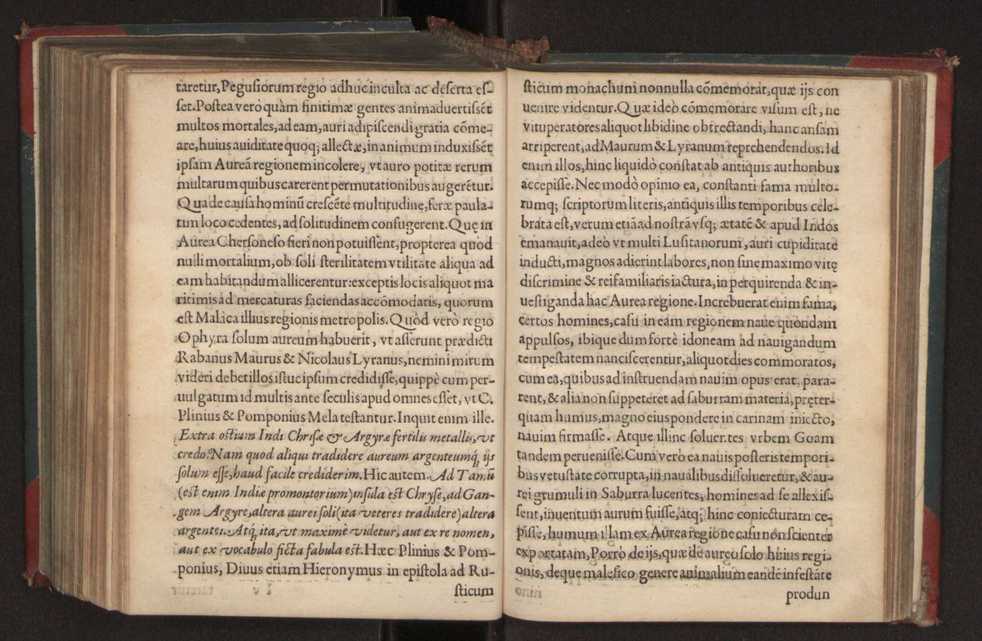 taretur, Pegusiorum regio adhuc inculta ac deserta es-
set. Postea verò quàm finitimæ gentes animaduertissēt
multos mortales, ad eam, auri adipiscendi gratia cōme-
are, huius auiditate quoq; allectæ, in animum induxissēt
ipsam Aureā regionem incolere, vt auro potitæ rerum
multarum quibus carerent permutationibus augerētur.
Qua de causa hominū crescēte multitudine, feræ paula-
tim loco cedentes, ad solitudinem confugerent. Quę in
Aurea Chersoneso fieri non potuissent, propterea quòd
nulli mortalium, ob soli sterilitatem vtilitate aliqua ad
eam habitandum allicerentur: exceptis locis aliquot ma
ritimis ad mercaturas faciendas accōmodatis, quorum
est Malàca illius regionis metropolis. Quòd verò regio
Ophyra solum aureum habuerit, vt asserunt prædicti
Rabanus Maurus & Nicolaus Lyranus, nemini mirum
videri debet illos istuc ipsum credidisse, quippè cum per-
uulgatum id multis ante seculis apud omnes esset, vt C.
Plinius & Pomponius Mela testantur. Inquit enim ille.
Extra ostium Indi Chrisæ & Argyræ fertilis metallis, vt
credo: Nam quod aliqui tradidere aureum argenteumq́ ijs
solum esse, haud facile crediderim. Hic autem. Ad Tamū
(est enim Indiæ promontorium) insula est Chryse, ad Gan-
gem Argyre, altera aurei soli (ita veteres tradidere) altera
argentei. Atq́ ita, vt maximè videtur, aut ex re nomen,
aut ex vocabulo ficta fabula est. Hæc Plinius & Pom-
ponius, Diuus etiam Hieronymus in epistola ad Ru-
sticum
sticum monachum nonnulla cōmemorat, quæ ijs con
uenire videntur. Quæ ideò cōmemorare visum est, ne
vituperatores aliquot libidine obtrectandi, hanc ansam
arriperent, ad Maurum & Lyranum reprehendendos. Id
enim illos, hinc liquidò constat ab antiquis authoribus
accepisse. Nec modò opinio ea, constanti fama multo-
rumq; scriptorum literis, antiquis illis temporibus cele-
brata est, verum etiā ad nostrā vsq; ætatē & apud Indos
emanauit, adeò vt multi Lusitanorum, auri cupiditate
inducti, magnos adierint labores, non sine maximo vitę
discrimine & rei familiaris iactura, in perquirenda & in-
uestiganda hac Aurea regione. Increbuerat enim fama,
certos homines, casu in eam regionem naue quondam
appulsos, ibique dum fortè idoneam ad nauigandum
tempestatem nanciscerentur, aliquot dies commoratos,
cum ea, quibus ad instruendam nauim opus erat, para-
rent, & alia non suppeteret ad saburram materia, pręter-
quam humus, magno eius pondere in carinam iniecto,
nauim firmasse. Atque illinc soluentes vrbem Goam
tandem peruenisse. Cum verò ea nauis posteris tempori-
bus vetustate corrupta, in naualibus dissolueretur, & au-
rei grumuli in Saburra lucentes, homines ad se allexis-
sent, inuentum aurum fuisse, atq; hinc coniecturam ce-
pisse, humum illam ex Aurea regione casu non scienter
exportatam, Porrò de ijs, quæ de aureo solo huius regi-
onis, deque malefico genere animalium eandē infestāte
produn